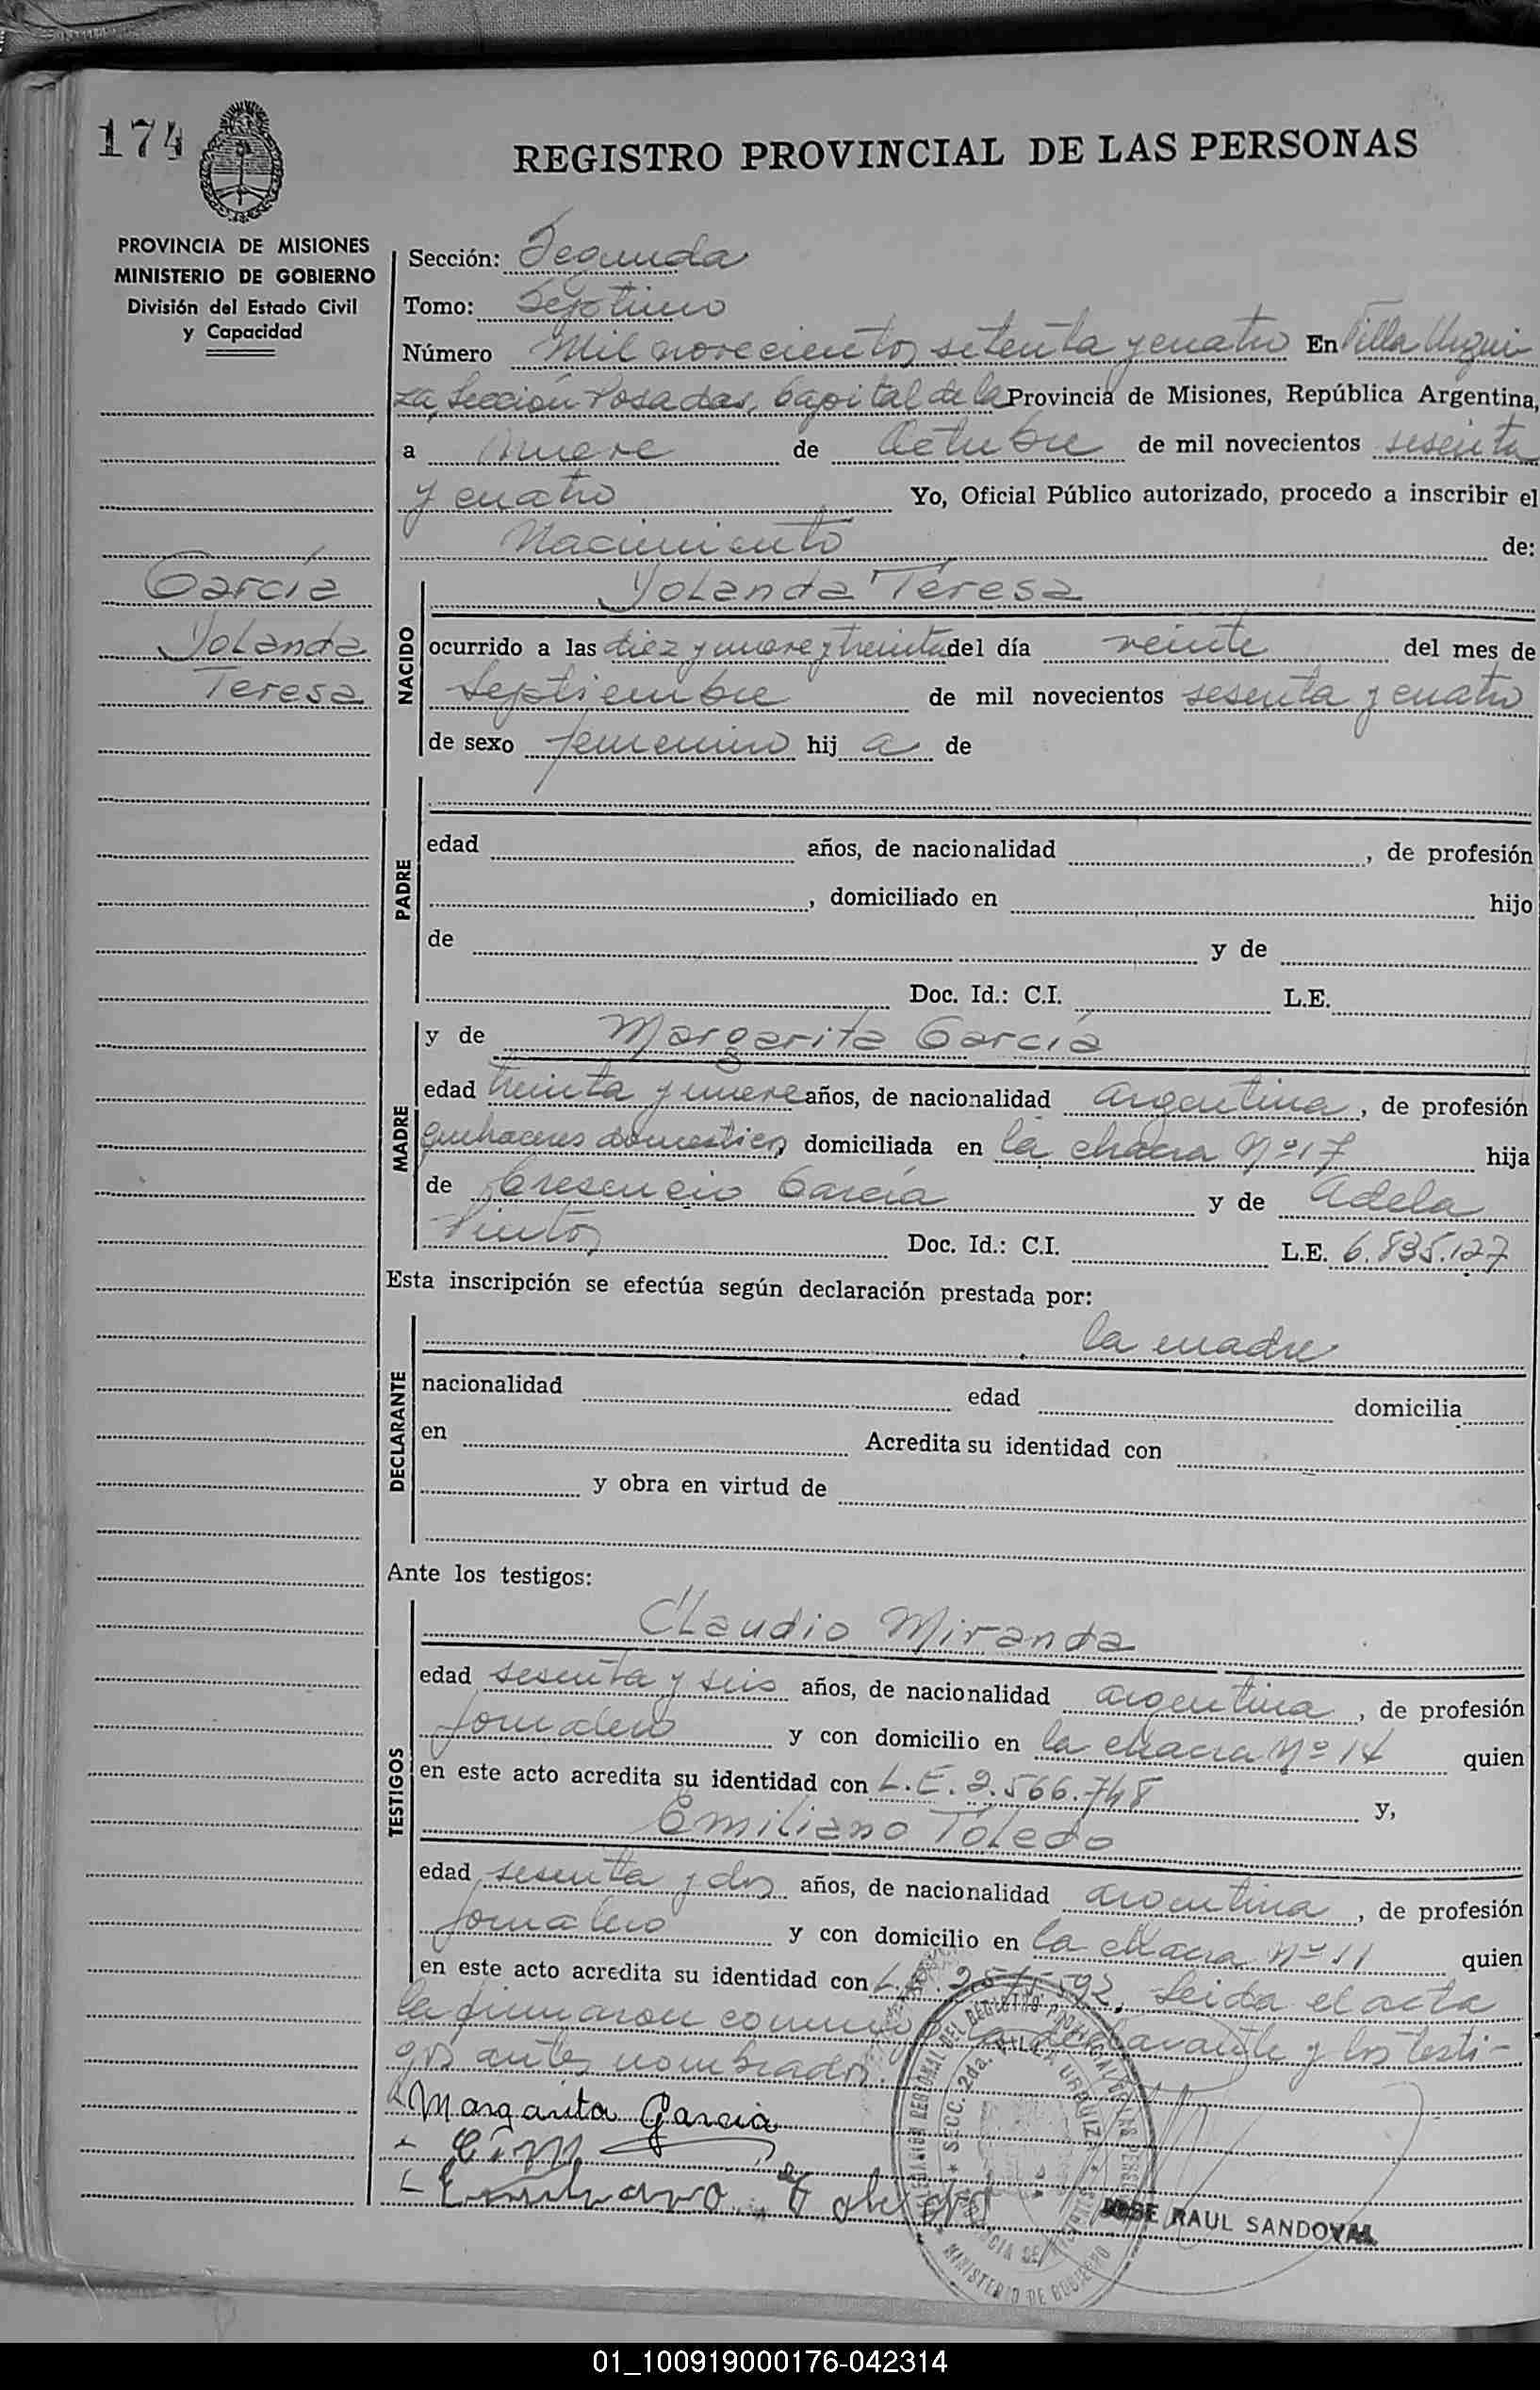 174
REGISTRO PROVINCIAL DE LAS PERSONAS
PROVINCIA DE MISIONES
MINISTERIO DE GOBIERNO
División del Estado Civil
y Capacidad
Sección: Segunda
Tomo: Septimo
Número Mil novecientos setenta y cuatro En Villa Urqui-
za, Sección Posadas, Capital de la Provincia de Misiones, República Argentina,
a nueve de Octubre de mil novecientos sesenta
y cuatro Yo, Oficial Público autorizado, procedo a inscribir el
Nacimiento de:
García
Yolanda
Teresa
NACIDO
Yolanda Teresa
ocurrido a las diez y nueve y treinta del día veinte del mes de
Septiembre de mil novecientos sesenta y cuatro
de sexo femenino hij a de
PADRE
edad años, de nacionalidad , de profesión
, domiciliado en hijo
de y de
Doc. Id.: C.I. L.E.
MADRE
y de Margarita García
edad treinta y nueve años, de nacionalidad argentina, de profesión
quehaceres domesticos domiciliada en la chacra Nº 17 hija
de Cresencio García y de Adela
Pintos Doc. Id.: C.I. L.E. 6.835.127
Esta inscripción se efectúa según declaración prestada por:
DECLARANTE
la madre
nacionalidad edad domicilia
en Acredita su identidad con
y obra en virtud de
Ante los testigos:
TESTIGOS
Claudio Miranda
edad sesenta y seis años, de nacionalidad argentina, de profesión
Jornalero y con domicilio en la chacra Nº 14 quien
en este acto acredita su identidad con L.E. 2.566.748 y,
Emiliano Toledo
edad sesenta y dos años, de nacionalidad argentina, de profesión
Jornalero y con domicilio en la chacra Nº 11 quien
en este acto acredita su identidad con Leida el acta
la firmaron conmigo la declarante y los testi-
gos antes nombrados.
Margarita Garcia
C. M.
Emiliano Toledo
SECC. 2da. VILLA URQUIZA
MINISTERIO DE GOBIERNO
JOSE RAUL SANDOVAL
01_100919000176-042314